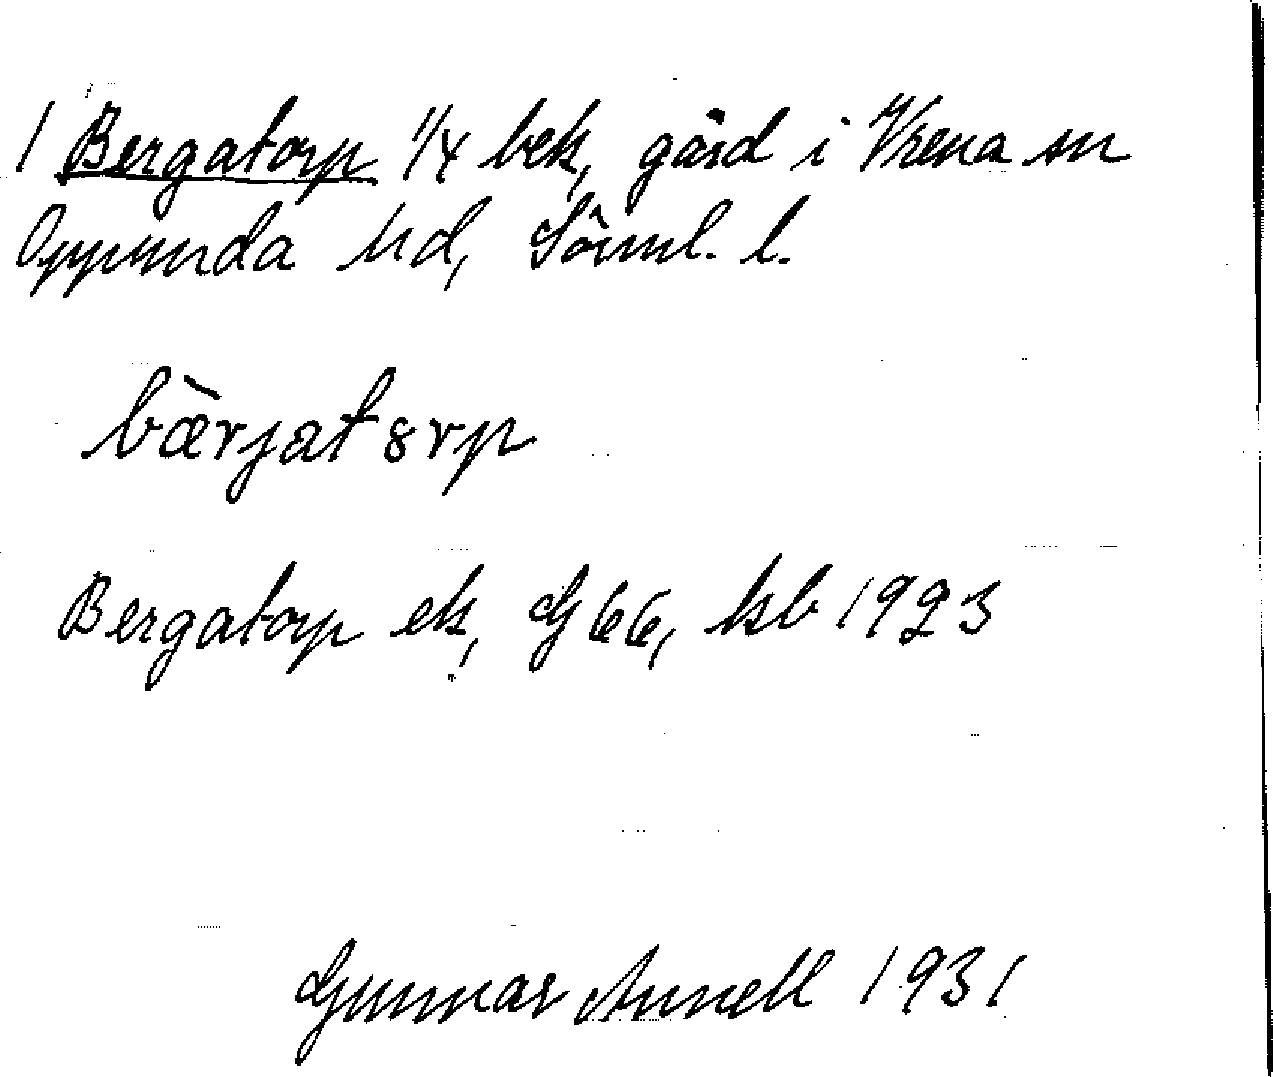 1 Bergatorp 1/4 bek, gård i Vrena sn
Oppunda hd, Söuml. l.
bæ̀rjatȣrp
Bergatorp ek, G 66, kb 1923
Gunnar Annell 1931